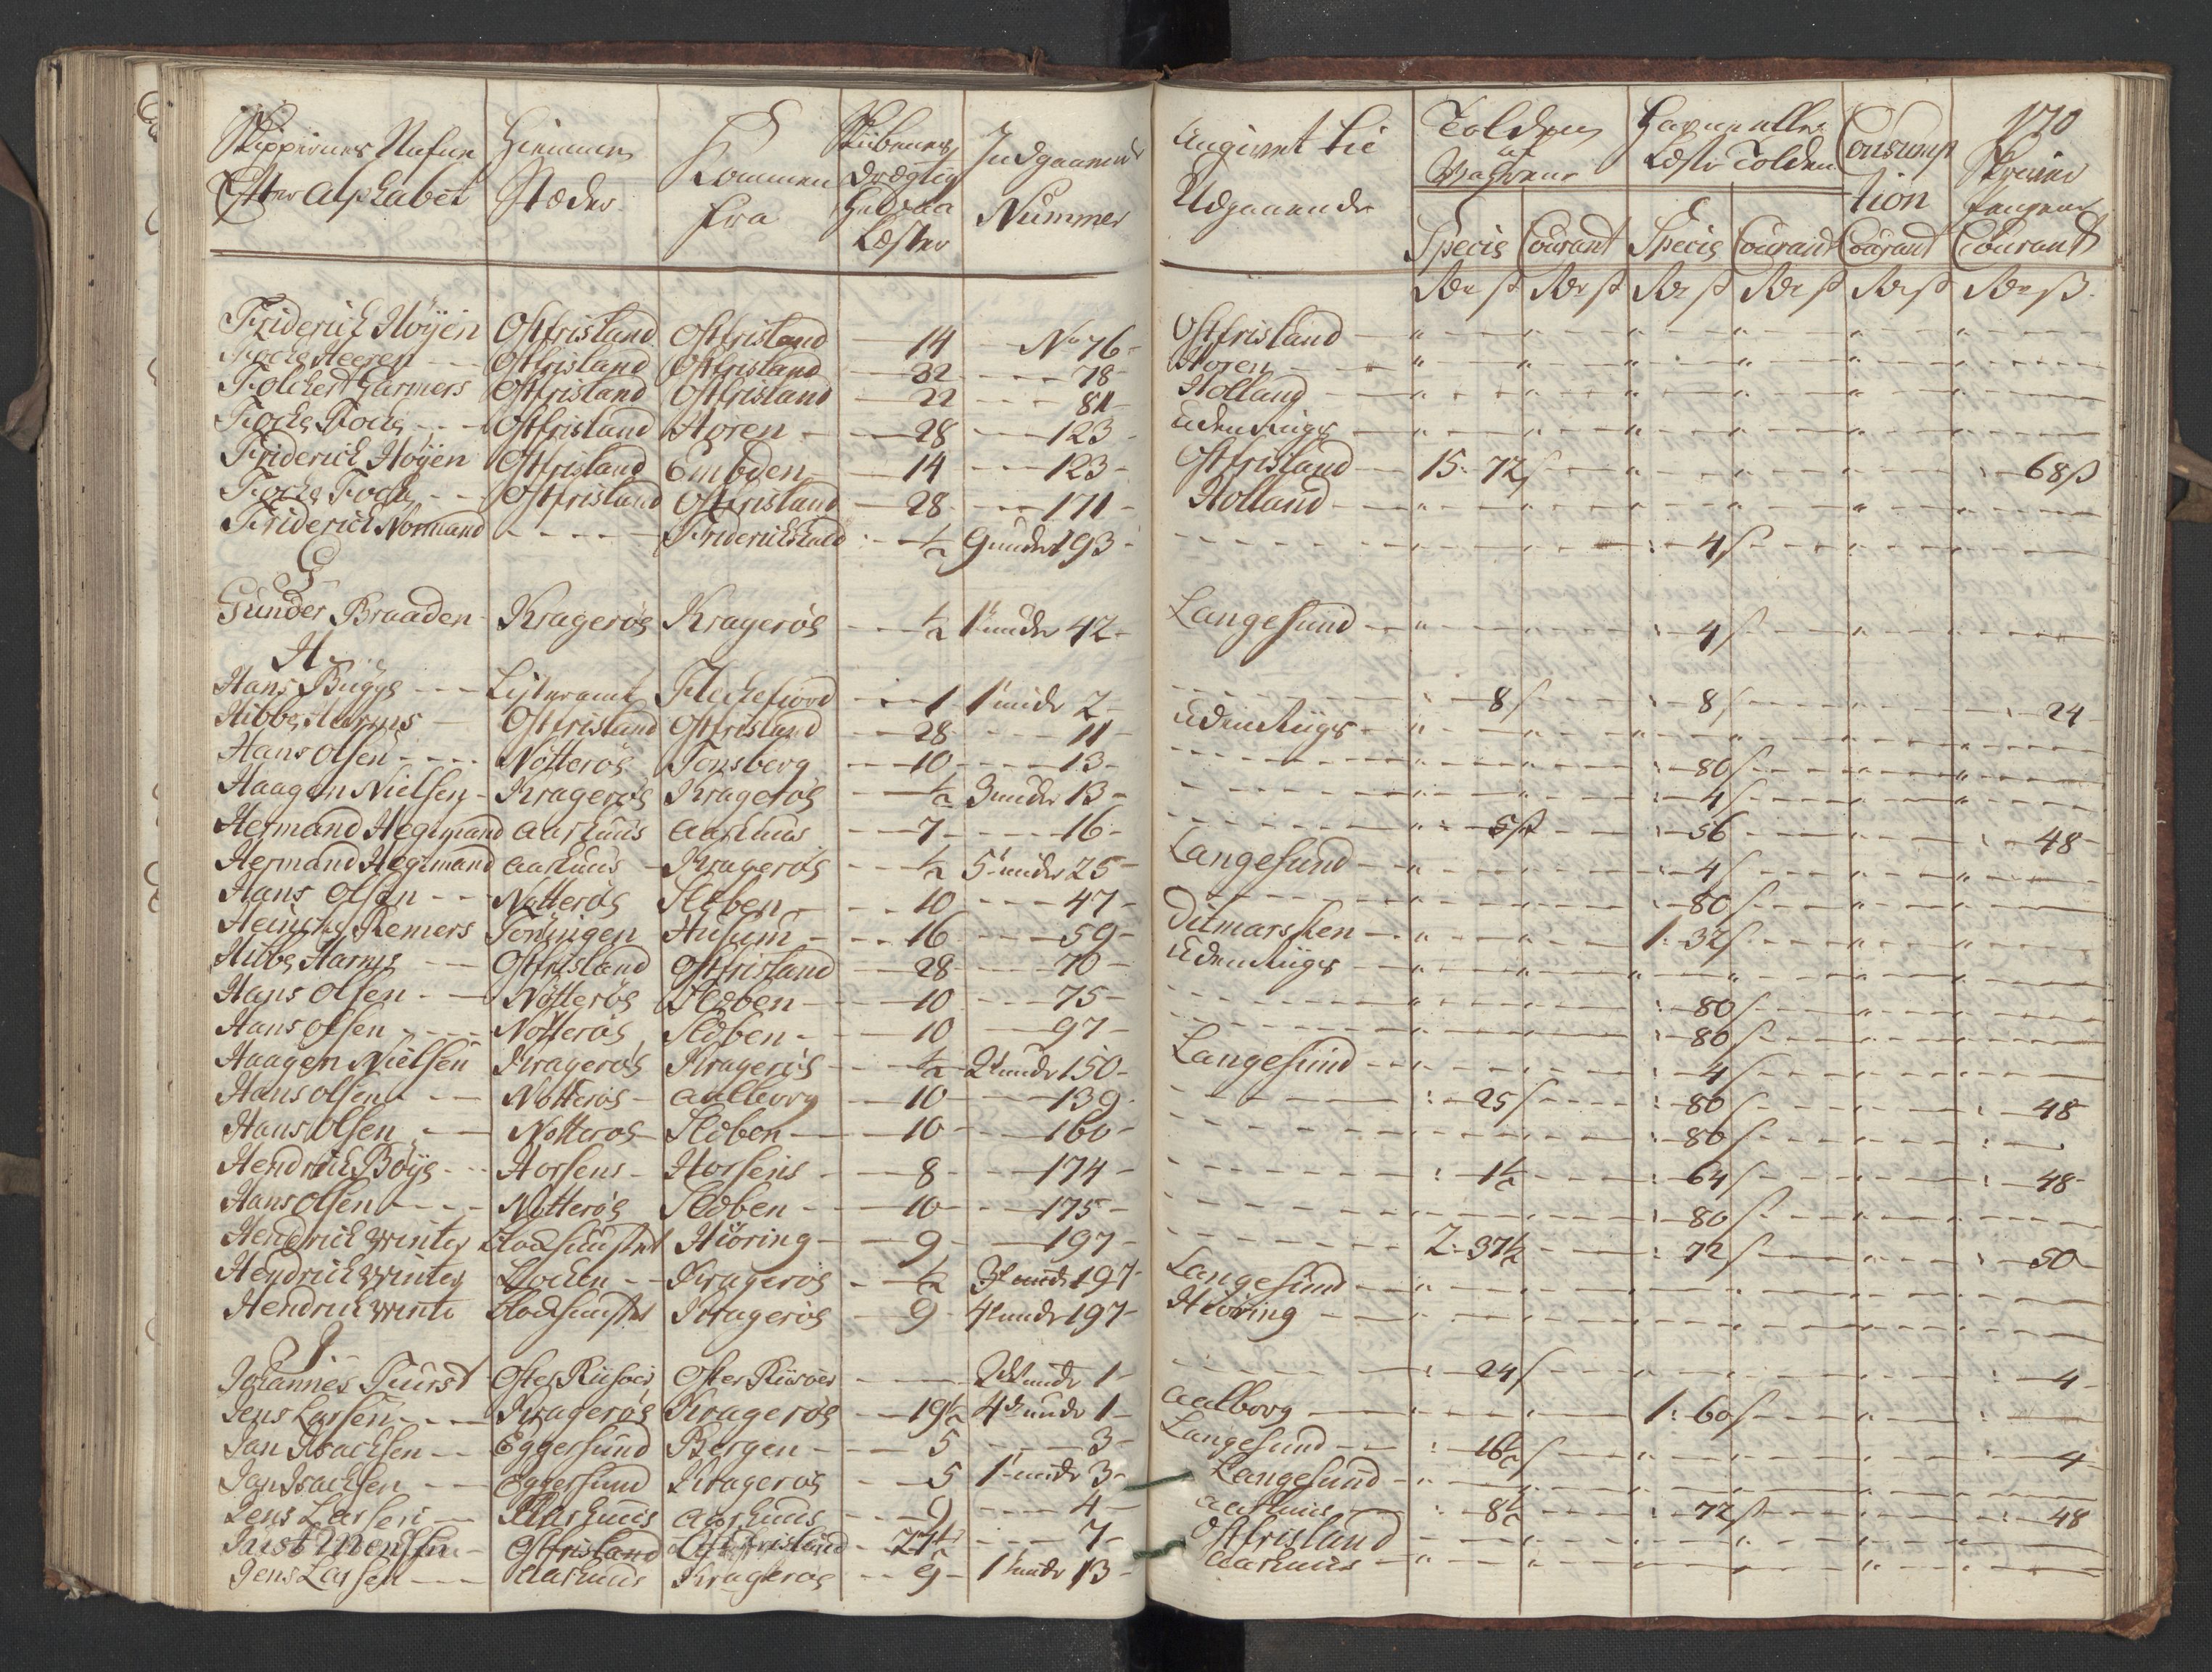 170
Skippernes Nafne Hiemme Kommen Skibenes Indgaaende Angivet til Tolden af Havne eller Consump Skriver
Efter Alphabet Stæder fra Drægtig Nummer Udgaaende Vahrene Læste Tolden tion Læster
Specis Courant Specis Courant Courant Courant
Friderich Höyen Ostfrisland Ostfrisland 14 No 76 Ostfrisland
Focke Heeren Ostfrisland Ostfrisland 32 78 Horen
Folckert Garmers Ostfrisland Ostfrisland 22 81 Holland
Focke Focke Ostfrisland Horen 28 123 udenRiigs
Friderich Höyen Ostfrisland Embden 14 123 Ostfrisland 15 72 68 ß
Focke Focke Ostfrisland Ostfrisland 28 171 Holland
Friderich Normand Friderichshald ½ 9 under 193 4 ß
G
Gunder Braaden Krageröe Krageröe ½ 1 under 42 Langesund 4 ß
H
Hans Bugge Listeramt Fleckefiord 1 1 under 2 8 ß 8 ß 24
Hibbe Harms Ostfrisland Ostfrisland 28 11 udenRiigs
Hans Olsen Nötteröe Tonsberg 10 13 80 ß
Haagen Nielsen Krageröe Krageröe ½ 3 under 13 4 ß
Hermand Hegemand Aarhuus Aarhuus 7 16 5 ß 56 48
Hermand Hegemand Aarhuus Krageröe ½ 5 under 25 Langesund 4 ß
Hans Olsen Nötteröe Sleben 10 47 80 ß
Heinche Remers Töningen Husum 16 59 Ditmarsken 1 32 ß
Hibbe Harms Ostfrisland Ostfrisland 28 70 udenRiigs
Hans Olsen Nötteröe Sleben 10 75 80 ß
Hans Olsen Nötteröe Sleben 10 97 80 ß
Haagen Nielsen Krageröe Krageröe ½ 2 under 150 Langesund 4 ß
Hans Olsen Nötteröe Aalborg 10 139 25 ß 80 ß 48
Hans Olsen Nötteröe Sleben 10 160 80 ß
Hendrich Böye Horsens Horsens 8 174 1½ 64 ß 48
Hans Olsen Nötteröe Sleben 10 175 80 ß
Hendrich Winter Hiöring 9 197 2 37½ 72 ß 50
Hendrich Winter Krageröe ½ 3 under 197 Langesund
Hendrich Winte Krageröe 9 4 under 197 Hiöring
I
Johannes Furst Oster Riisöer Oster Riisöer 2 under 1 24 ß 4
Jens Larsen Krageröe Krageröe 19½ 4 under 1 Aalborg 1 60 ß
Jan Isachsen Eggersund Bergen 5 3 Langesund 16½ ß 4
Jan Isachsen Eggersund Krageröe 5 1 under 3 Langesund
Jens Larsen Aarhuus Aarhuus 9 4 Aarhuus 8½ 72 ß 48
Just Menssen Ostfrisland Ostfrisland 27½ 7 Ostfrisland
Jens Larsen Aarhuus Krageröe 9 1 under 13 Aarhuus